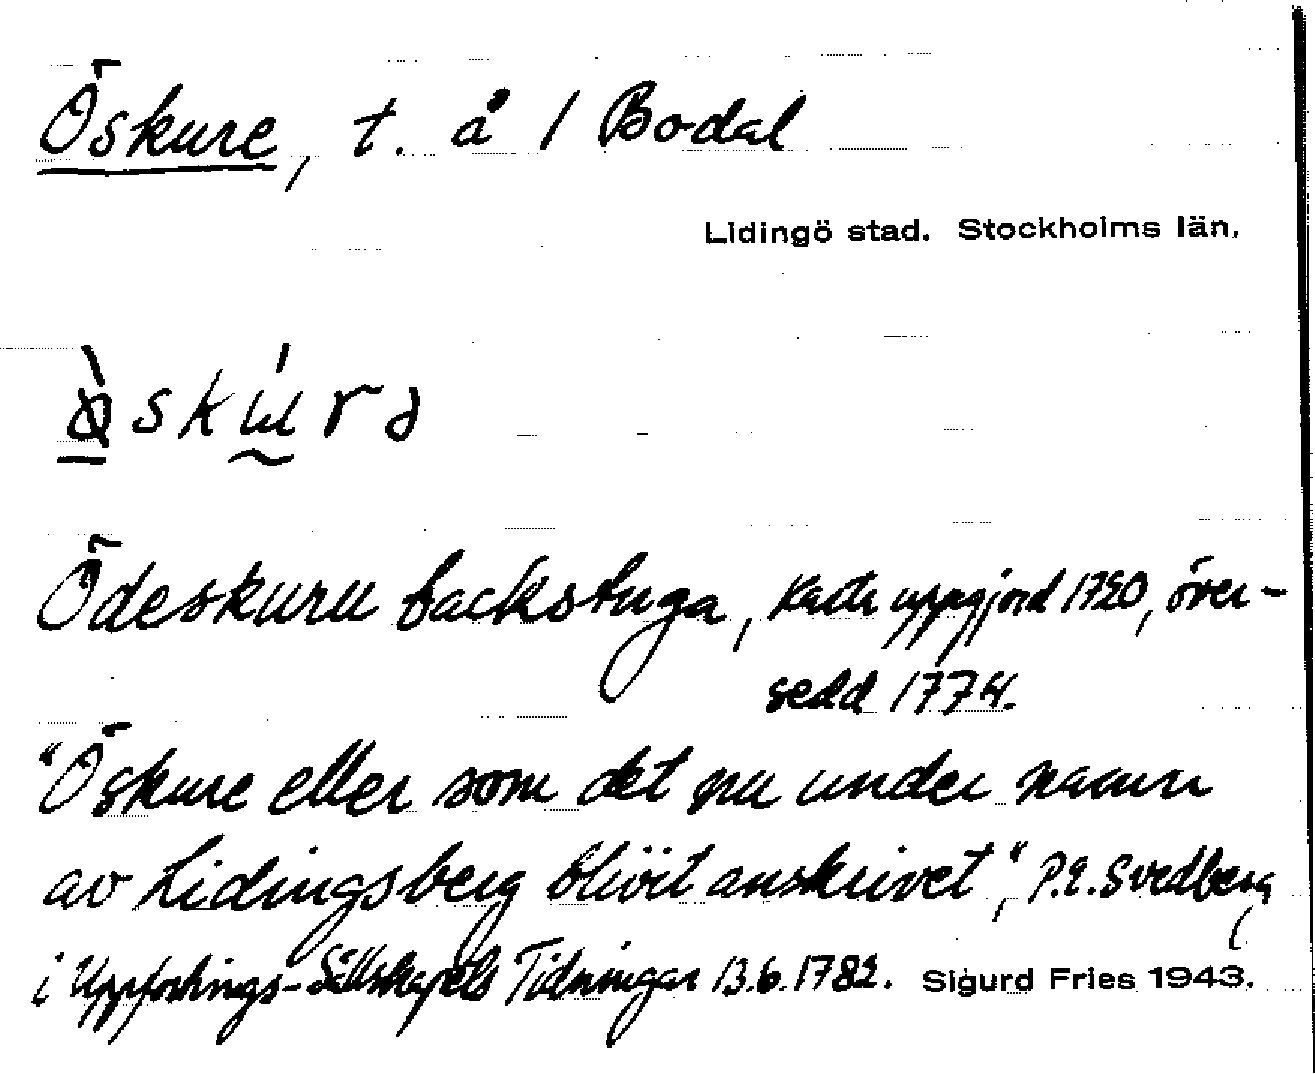 Öskure, t. å / Bodal
Lidingö stad. Stockholms län.
Ödeskuru backstuga, karta uppgjord 1720, över-
sedd 1774.
"Öskure eller som det nu under namn
av Lidingsberg blivit anskrivet", P.E. Svedberg
i Uppfostrings-Sällskapets Tidningar 13.6.1782. Sigurd Fries 1943.